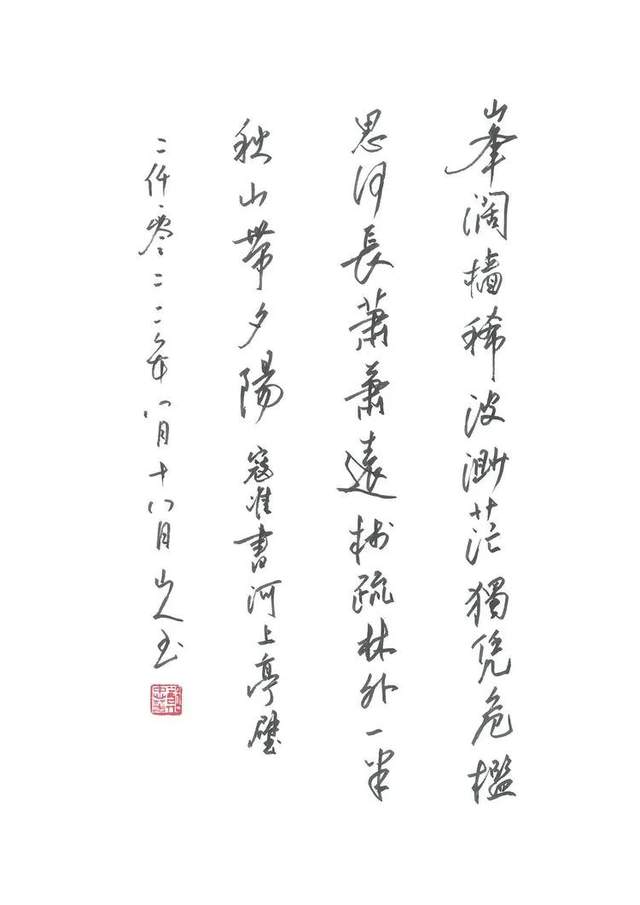 岸阔樯稀波渺茫獨凭危檻
思何長蕭蕭遠树疏林外一半
秋山帶夕陽 寇准書河上亭壁
二仟零二二年八月十八日 山人